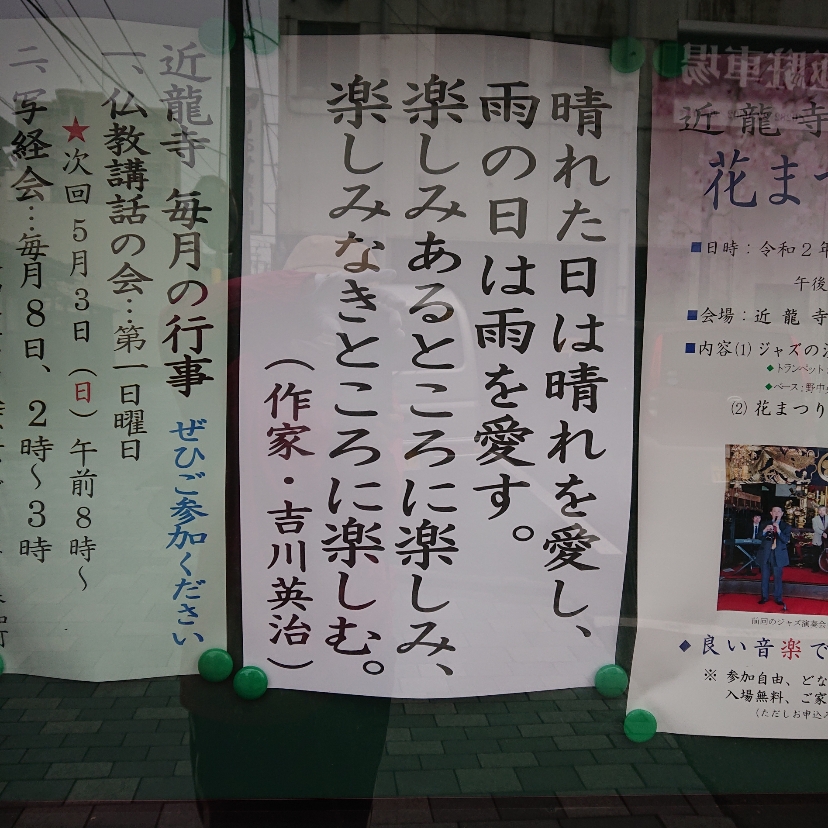 晴れた日は晴れを愛し、
雨の日は雨を愛す。
楽しみあるところに楽しみ、
楽しみなきところに楽しむ。
（作家・吉川英治）
近龍寺 毎月の行事 ぜひご参加ください
一、仏教講話の会…第一日曜日
★次回５月３日（日）午前８時～
二、写経会…毎月８日、２時～３時
駐車場
近龍寺
花まつ
■日時：令和２年
午後
■会場：近龍寺
■内容⑴ジャズの
◆トランペット
◆ベース：野中
⑵花まつり
前回のジャズ演奏会
◆良い音楽で
※参加自由、どな
入場無料、ご家
（ただしお申込